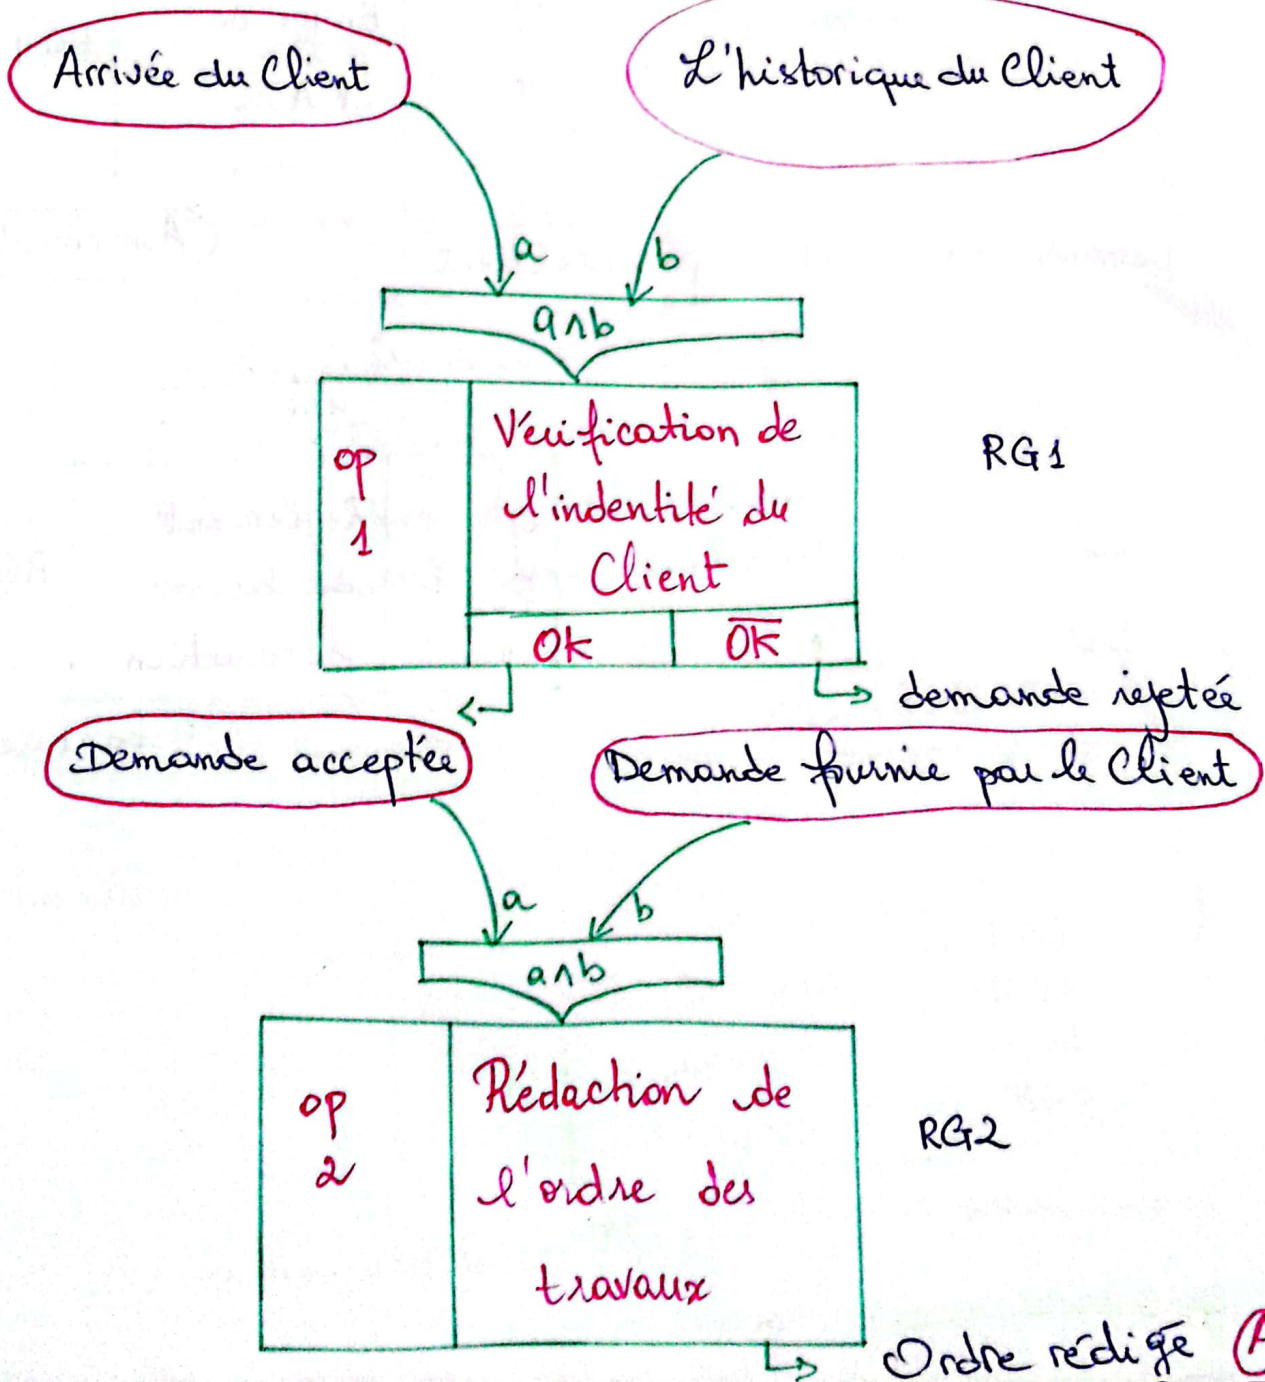 Arrivée du Client
L'historique du Client
a
b
a∧b
op
1
Vérification de
l'indentité du
Client
RG1
Ok
O̅k̅
demande rejetée
Demande acceptée
Demande fournie par le Client
a
b
a∧b
op
2
Rédaction de
l'ordre des
travaux
RG2
Ordre rédigé